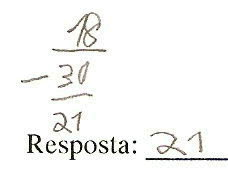 18
- 30
21
Resposta: 21